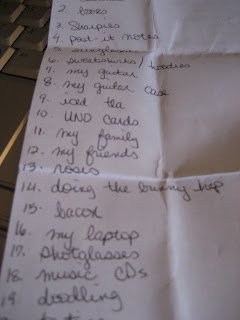 2. books
3. Sharpies
4. post-it notes
5. sunglasses
6. sweatshirts/hoodies
7. my guitar
8. my guitar case
9. iced tea
10. UNO cards
11. my family
12. my friends
13. roses
14. doing the bunny hop
15. bacon
16. my laptop
17. photglasses
18. music CDs
19. doodling